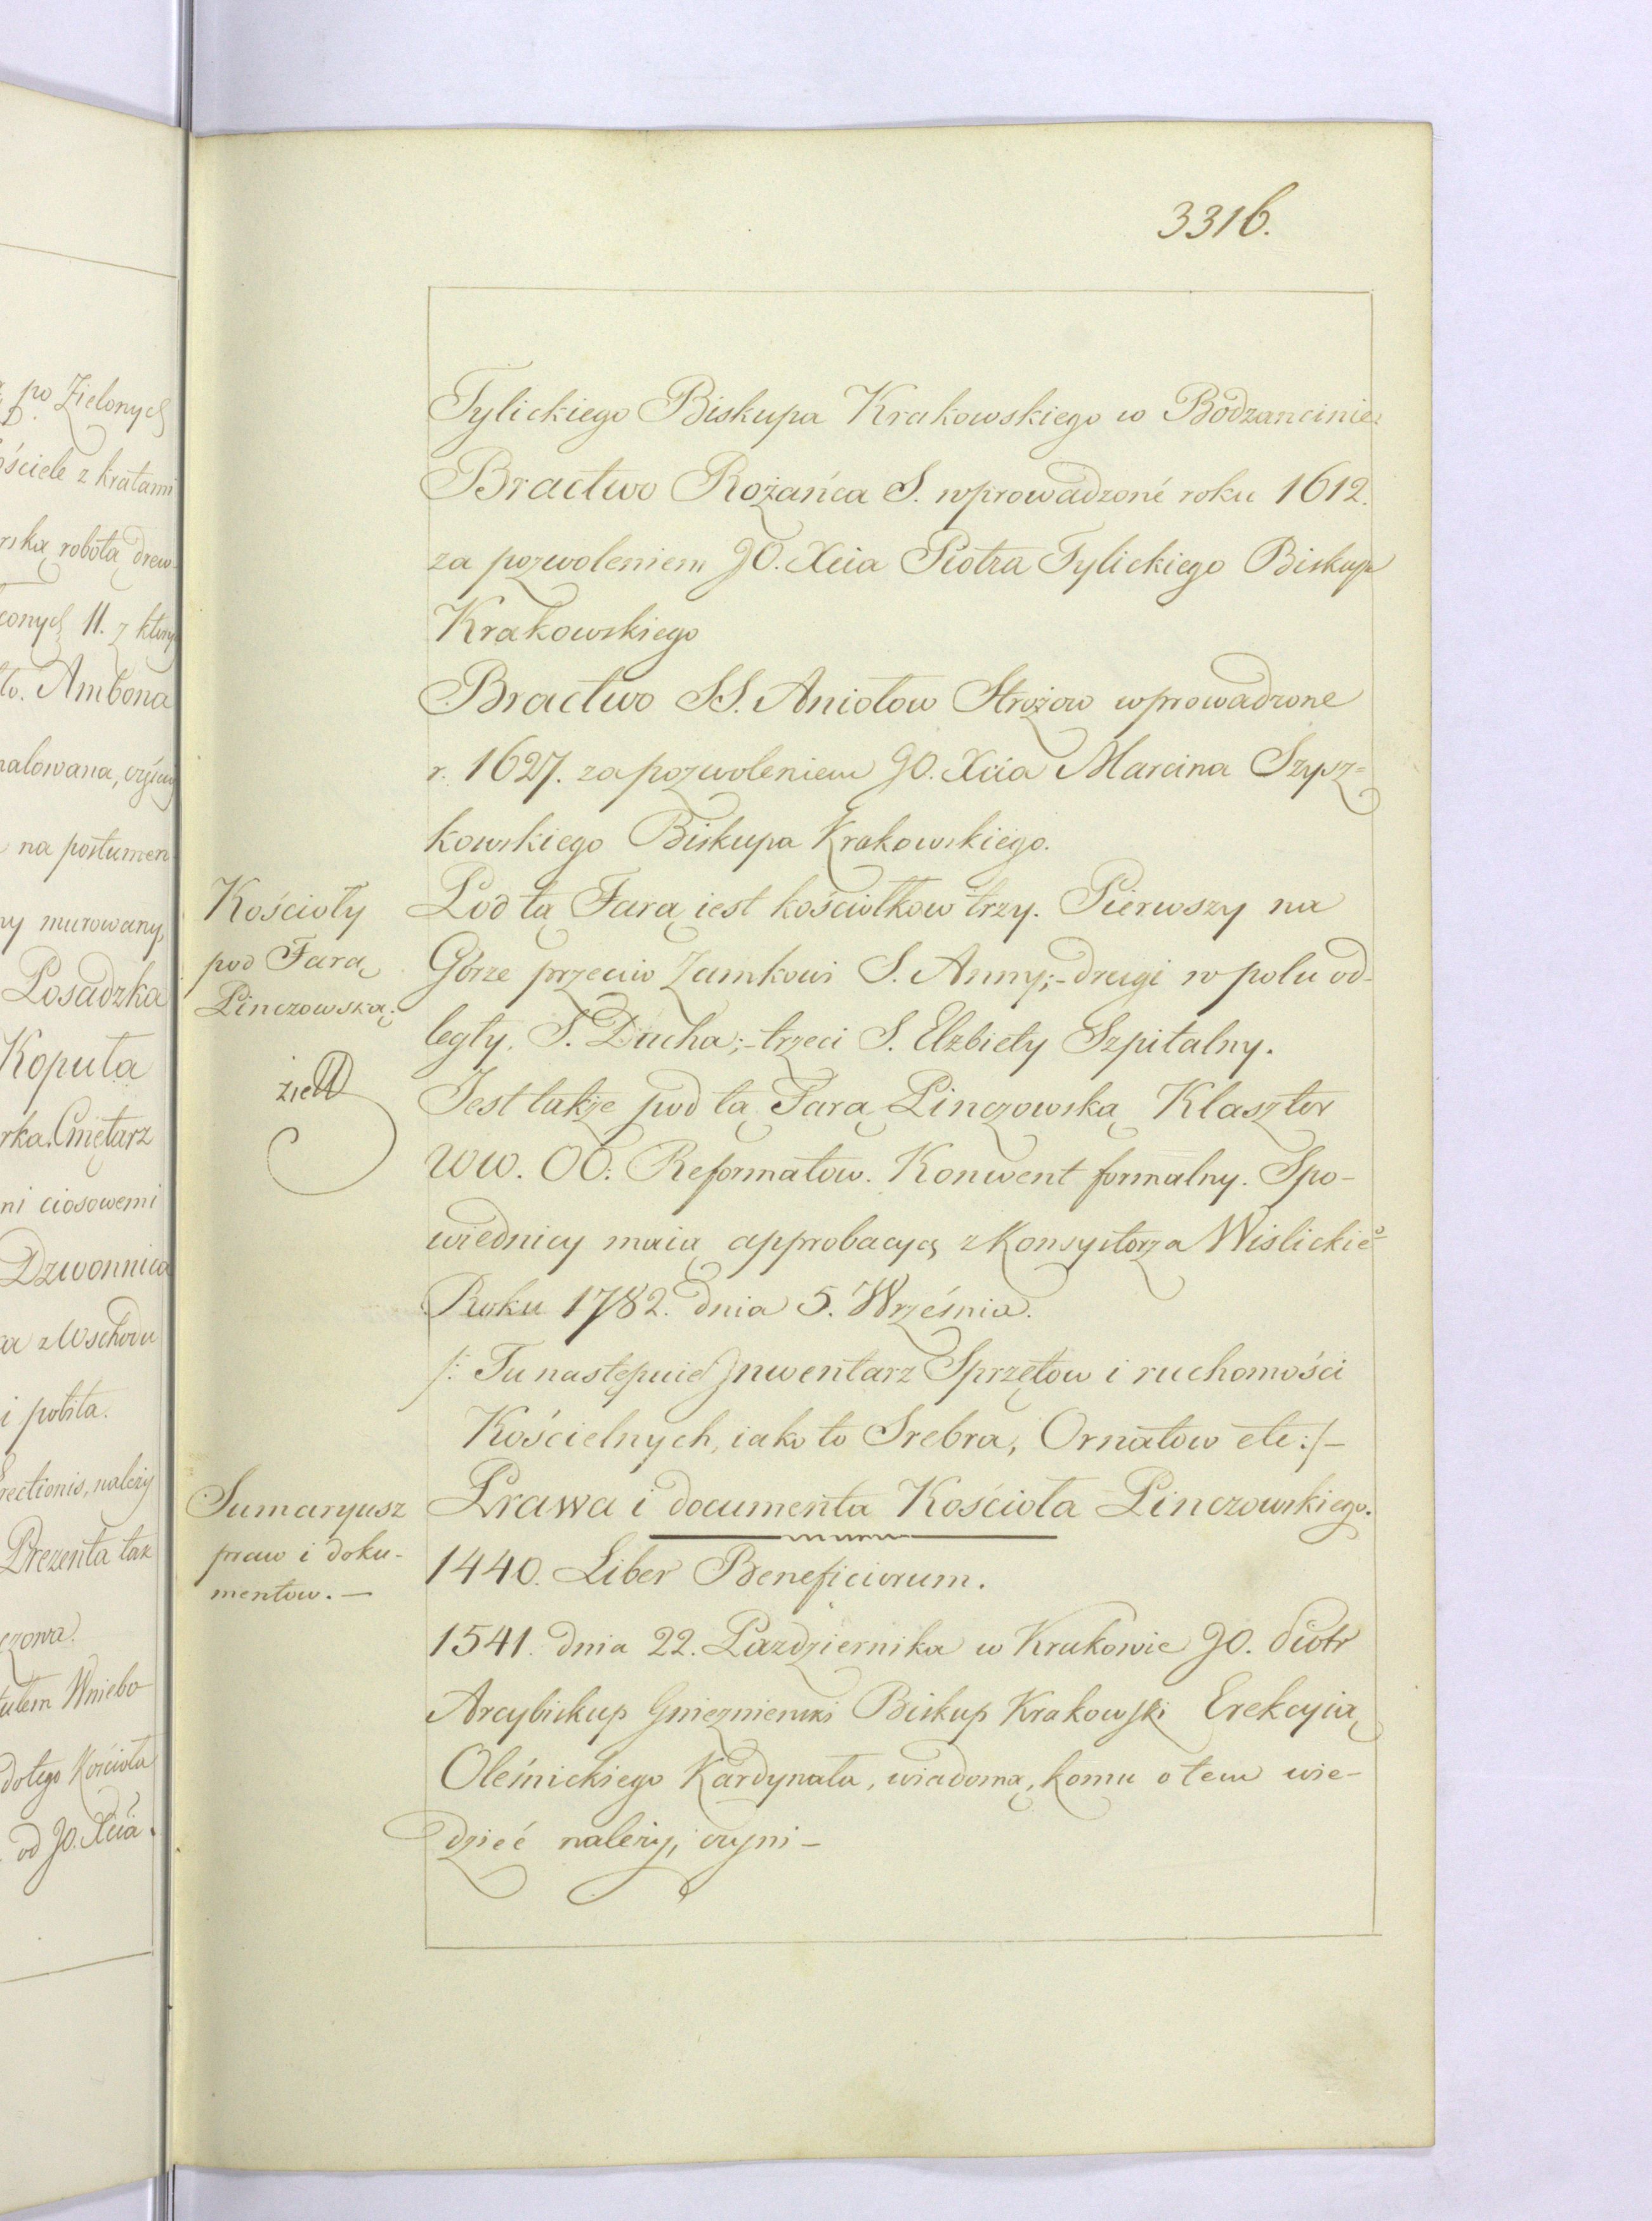 3316.
Tylickiego Biskupa Krakowskiego w Bodzancinie
Bractwo Rożańca S. wprowadzoné roku 1612.
za pozwoleniem JO. Xcia Piotra Tylickiego Biskup
Krakowskiego
Bractwo SS. Aniołow Strożow wprowadzone
r. 1627. za pozwoleniem JO. Xcia Marcina Szysz=
kowskiego Biskupa Krakowskiego.
Kościoły
pod Farą
Pinczowską.
Pod tą Farą iest kościołkow trzy. Pierwszy na
Górze przeciw Zamkowi S. Anny;- drugi w polu od-
legły. S. Ducha;- trzeci S. Elzbiety Szpitalny.
Jest także pod tą Farą Pinczowską Klasztor
WW. OO: Reformatow. Konwent formalny. Spo-
wiednicy maią approbacyą z Konsystorza Wislickieº
Roku 1782. dnia 5. Września.
/: Tu nastepuie Jnwentarz Sprzętow i ruchomości
Kościelnych, iako to Srebra, Ornatow etc:/-
Sumaryusz
praw i doku-
mentow. -
Prawa i documenta Kościoła Pinczowskiego.
1440. Liber Beneficiorum.
1541. dnia 22. Pazdziernika w Krakowie JO. Piotr
Arcybiskup Gnieznienski Biskup Krakowski Erekcyią
Oleśnickiego Kardynała, wiadomą, komu o tem wie-
dzieć należy, czyni -
po Zielonych
z kratami
robotą drew-
11. z
Ambona
na postumen
murowany,
Posadzka
Kopuła
Cmętarz
ciosowemi
Dzwonnica
z Wschodu
i pobita.
należy
Prezenta tak
Wniebo
dotego Kościoła
od JO. Xcia